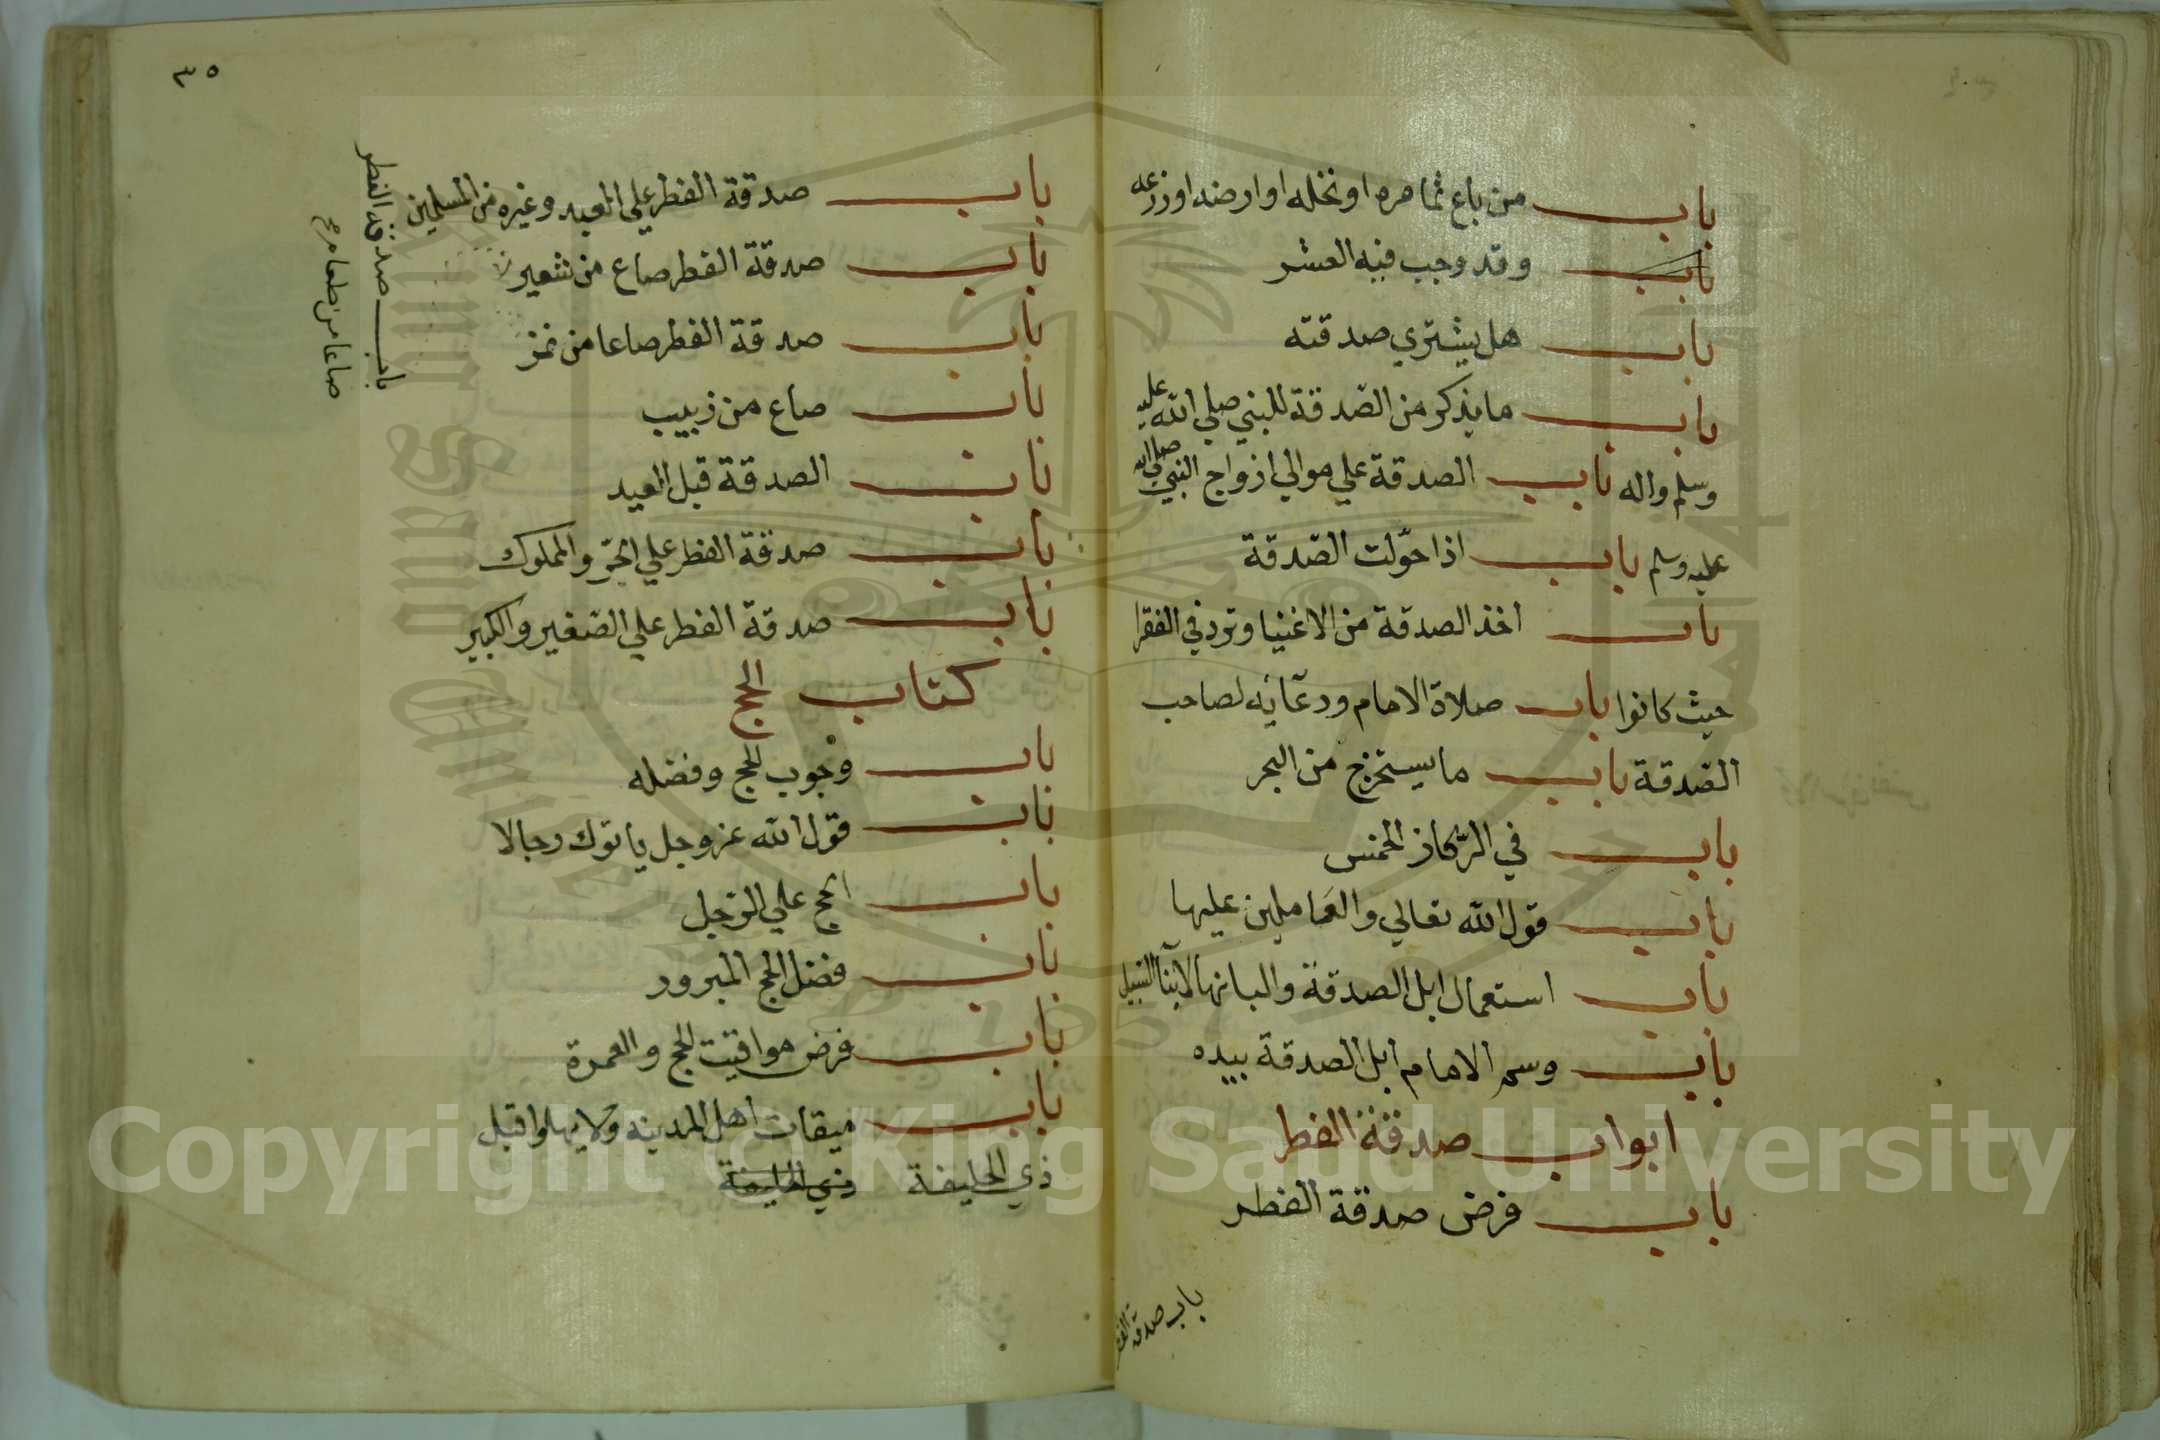 باب من باع ثماره او نخله او ارضه او زرعه
باب وقد وجب فيه العشر
باب هل يشتري صدقته
باب ما يذكر من الصدقة للنبي صلي الله عليه
وسلم واله باب الصدقة علي موالي ازواج النبي صلي الله
عليه وسلم باب اذا حوّلت الصدقة
باب اخذ الصدقة من الاغنيا وترد في الفقرا
حيث كانوا باب صلاة الامام ودعائه لصاحب
الصدقة باب ما يستخرج من البحر
باب في الرّكاز الخمس
باب قول الله تعالي والعاملين عليها
باب استعمال ابل الصدقة والبانها لابنآ السبيل
باب وسم الامام ابل الصدقة بيده
ابواب صدقة الفطر
باب فرض صدقة الفطر
باب صدقة الفطر
٣٥
باب صدقة الفطر علي العبد وغيره من المسلمين
باب صدقة الفطر صاع من شعير
باب صدقة الفطر صاعا من تمر
باب صاع من زبيب
باب الصدقة قبل العيد
باب صدقة الفطر علي الحرّ والمملوك
باب صدقة الفطر علي الصغير والكبير
كتاب الحج
باب وجوب الحج وفضله
باب قول الله عزوجل ياتوك رجالا
باب الحج علي الرحل
باب فضل الحج المبرور
باب فرض مواقيت الحج والعمرة
باب ميقات اهل المدينة ولا يهلوا قبل
ذي الحليفة ذي الحليفة
باب صدقة الفطر
صاعا من طعام صح
Copyright © King Saud University
King Saud University
1957